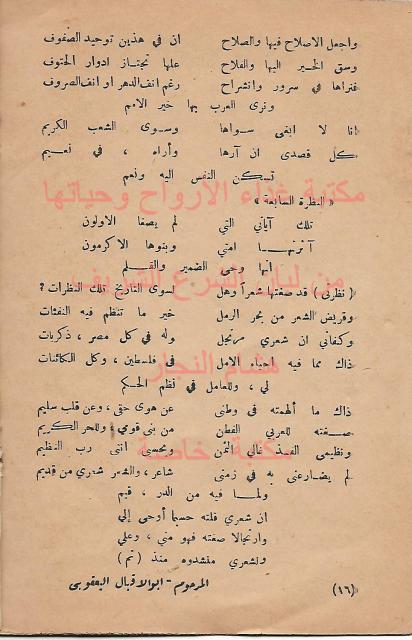 واجعل الاصلاح فيها والصلاح ان في هذين توحيد الصفوف
وسق الخير اليها والفلاح علها تجتاز ادوار الحتوف
فتراها في سرور وانشراح رغم انف الدهر او انف الصروف
ونرى العرب بها خير الامم
انا لا ابغى سواها وسوى الشعب الكريم
كل قصدى ان آرها وأراه ، في نعيم
تسكن النفس اليه ونعم
مكتبة غذاء الارواح وحياتها
« النظرة السابعة »
تلك آياتي التي لم يصفا الاولون
آثرتها امتي وبنوها الاكرمون
انها وحى الضمير والقلم
من لبان الشرع الشريف
( نظرتى ) قد صغتها شعراً وهل لسوى التاريخ تلك النظرات ؟
وقريض الشعر من بحر الرمل خير ما تنظم فيه النفثات
وكفاني ان شعري مرتجل وله في كل مصر ، ذكريات
ذاك مما فيه احياء الامل في فلسطين ، وكل الكائنات
هشام النجار
لي ، وللعامل في نظم الحكم
ذاك ما ألهمته في وطنى عن هوى حتى ، وعن قلب سليم
صغته للعربي الفطن من بنى قومي وللحر الكريم
ونظيمى الفذ غالي الثمن وبحسبى اننى رب النظيم
مكتبة خاصة
لم يضارعنى به في زمنى شاعر ، والشعر شعري من قديم
ولما فيه من الدر ، قيم
ان شعري قلته حسبما أوحى إلي
وارتجالا صغته فهو مني ، وعلي
ولشعري منشدوه منذ ( تم )
المرحوم - ابوالاقبال اليعقوبى
(١٦)